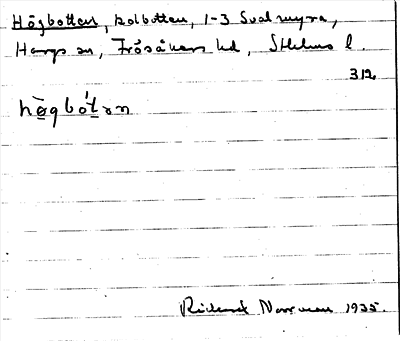 Högbotten, kolbotten, 1-3 Svalmyra,
Hargs sn, Frösåkers hd, Sthlms l.
312
hὲgbót̲ən
Rickard Norrman 1935.